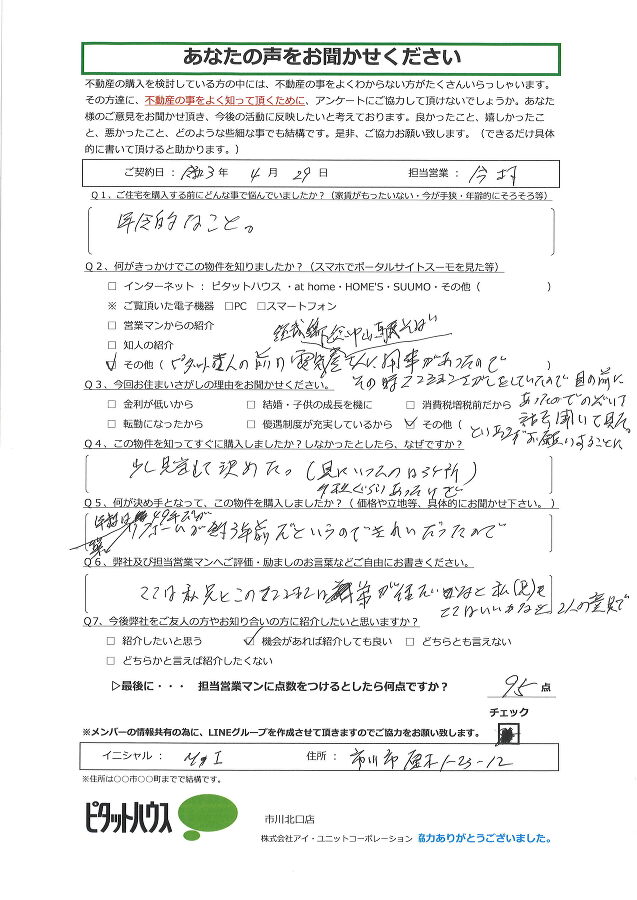 あなたの声をお聞かせください
不動産の購入を検討している方の中には、不動産の事をよくわからない方がたくさんいらっしゃいます。
その方達に、不動産の事をよく知って頂くために、アンケートにご協力して頂けないでしょうか。あなた
様のご意見をお聞かせ頂き、今後の活動に反映したいと考えております。良かったこと、嬉しかったこ
と、悪かったこと、どのような些細な事でも結構です。是非、ご協力お願い致します。（できるだけ具体
的に書いて頂けると助かります。）
ご契約日： 令和3年 4月 29日 担当営業： 今村
Q1、ご住宅を購入する前にどんな事で悩んでいましたか？（家賃がもったいない・今が手狭・年齢的にそろそろ等）
年令的なこと。
Q2、何がきっかけでこの物件を知りましたか？（スマホでポータルサイトスーモを見た等）
□ インターネット：ピタットハウス・at home・HOME'S・SUUMO・その他（ ）
※ ご覧頂いた電子機器 □PC □スマートフォン
□ 営業マンからの紹介
□ 知人の紹介
総武線下総中山駅そば
☑ その他（ピタットさんの前の電気屋さんに用事があったので ）
Q3、今回お住まいさがしの理由をお聞かせください。
その時マンションさがしをしていたので目の前に
あったのでのぞいて
話を聞いて見た
□ 金利が低いから □ 結婚・子供の成長を機に □ 消費税増税前だから
□ 転勤になったから □ 優遇制度が充実しているから ☑ その他（
Q4、この物件を知ってすぐに購入しましたか？しなかったとしたら、なぜですか？
少し見学して決めた。（見にいったのは3ヶ所）
Q5、何が決め手となって、この物件を購入しましたか？（価格や立地等、具体的にお聞かせ下さい。）
49年だが
リフォームが約3年前だというのできれいだったので
Q6、弊社及び担当営業マンへご評価・励ましのお言葉などご自由にお書きください。
ここは私兄とこのマンションは
2人の意見で
Q7、今後弊社をご友人の方やお知り合いの方に紹介したいと思いますか？
□ 紹介したいと思う ☑ 機会があれば紹介しても良い □ どちらとも言えない
□ どちらかと言えば紹介したくない
▷最後に・・・ 担当営業マンに点数をつけるとしたら何点ですか？ 95 点
チェック
※メンバーの情報共有の為に、LINEグループを作成させて頂きますのでご協力をお願い致します。
イニシャル： M・I 住所： 市川市原木1-23-12
※住所は〇〇市〇〇町までで結構です。
ピタットハウス
市川北口店
株式会社アイ・ユニットコーポレーション 協力ありがとうございました。